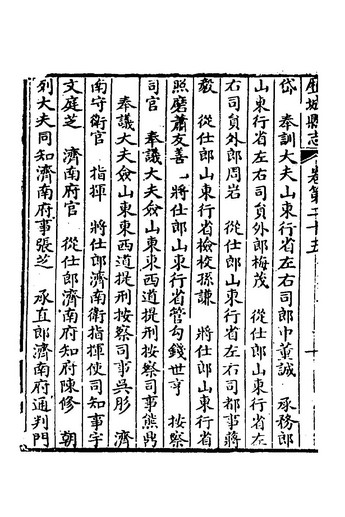 歷城縣志 卷第二十五
岱 奉訓大夫山東行省左右司郎中董誠 承務郎
山東行省左右司員外郎梅茂 從仕郎山東行省左
右司員外郎周岩 從仕郎山東行省左右司都事蔣
毅 從仕郎山東行省檢校孫謙 將仕郎山東行省
照磨蕭友善 將仕郎山東行省管勾錢世亨 按察
司官 奉議大夫僉山東東西道提刑按察司事熊鼎
奉議大夫僉山東東西道提刑按察司事吳彤 濟
南守衛官 指揮 將仕郎濟南衛指揮使司知事宇
文庭芝 濟南府官 從仕郎濟南府知府陳修 朝
列大夫同知濟南府事張芝 承直郎濟南府通判門